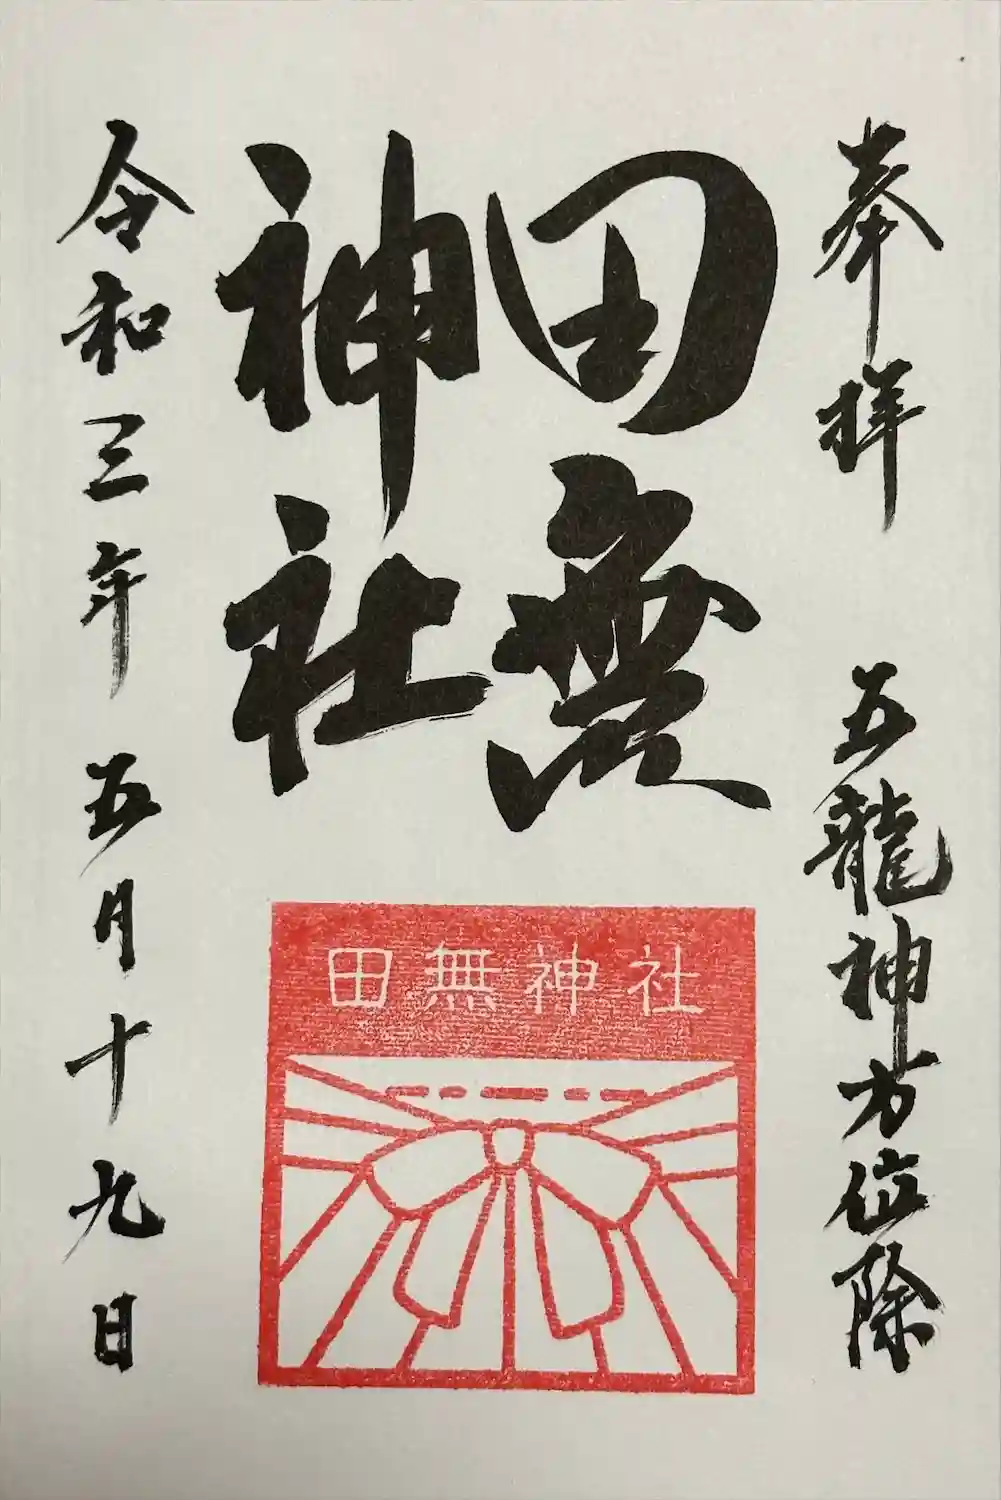 奉拝　五龍神方位除
田無
神社
令和三年　五月十九日
田無神社